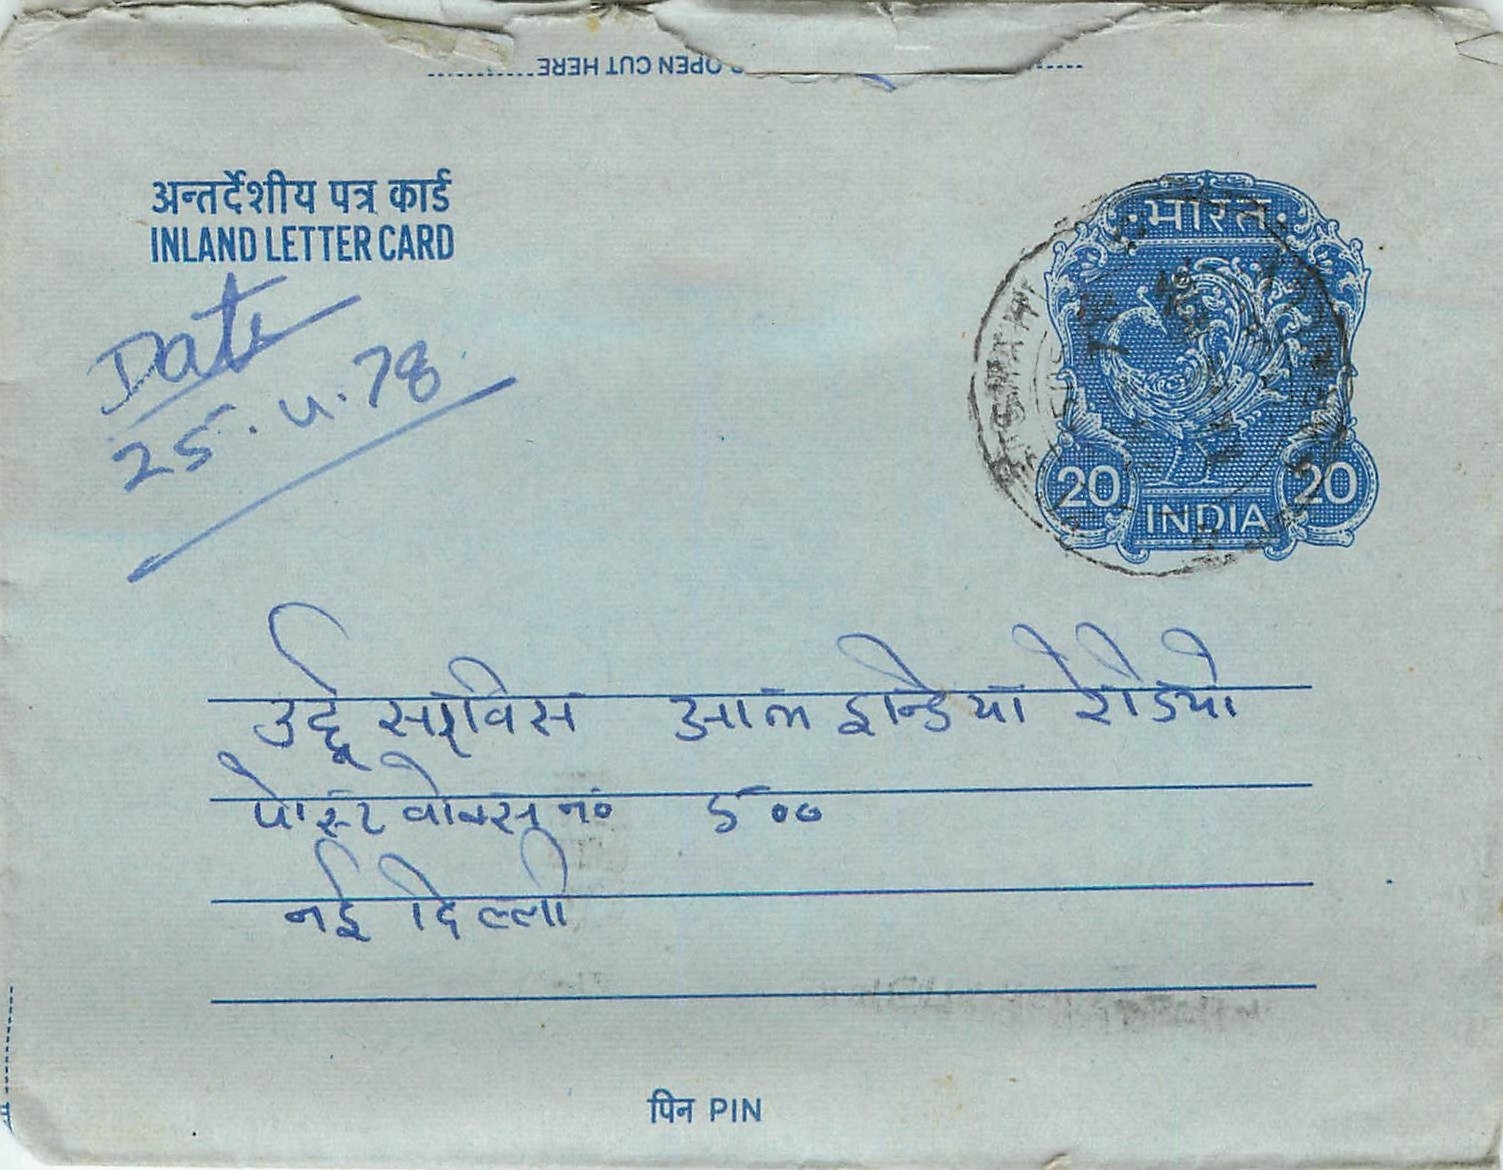 OPEN CUT HERE
अन्तर्देशीय पत्र कार्ड
INLAND LETTER CARD
भारत
20 20
INDIA
Date
25.4.78
उर्दू सर्विस आल इन्डिया रेडियो
पोस्ट बोक्स नं० ५००
नई दिल्ली
पिन PIN